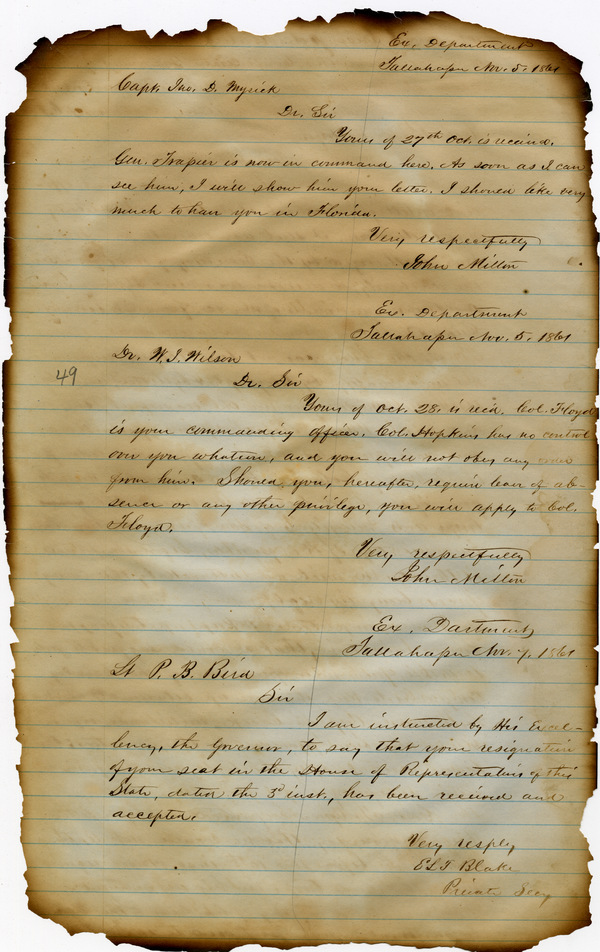 Ex. Department
Tallahassee Nov. 5. 1861
Capt. Jno. D. Myrick
Dr. Sir
Yours of 27th Oct. is received.
Gen. Trapier is now in command here. As soon as I can
see him, I will show him your letter. I should like very
much to have you in Florida.
Very respectfully
John Milton
Ex. Department
Tallahassee Nov. 5. 1861
Dr. W. J. Wilson
49
Dr. Sir
Yours of Oct. 28. is rec'd. Col. Floyd
is your commanding officer. Col. Hopkins has no control
over you whatever, and you will not obey any order
from him. Should you, hereafter, require leave of ab-
sence or any other privilege, you will apply to Col.
Floyd.
Very respectfully
John Milton
Ex. Dartment
Tallahassee Nov. 7. 1861
Lt P. B. Bird
Sir
I am instructed by His Excel-
lency, the Governor, to say that your resignation
of your seat in the House of Representatives of this
State, dated the 3d inst., has been received and
accepted.
Very resply
Private Secy